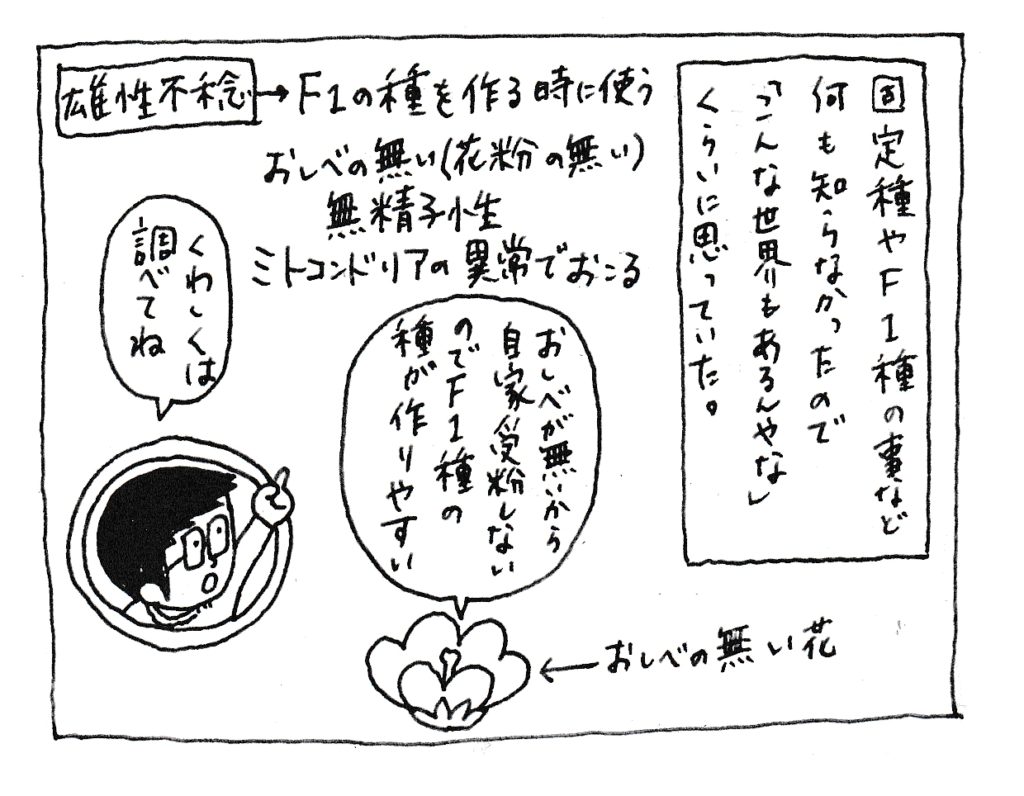 固定種やF1種の事など
何も知らなかったので
「こんな世界もあるんやな」
くらいに思っていた。
雄性不稔→F1の種を作る時に使う
おしべの無い(花粉の無い)
無精子小生
ミトコンドリアの異常でおこる
くわしくは
調べてね
おしべが無いから
自家受粉しない
のでF1種の
種が作りやすい
←おしべの無い花